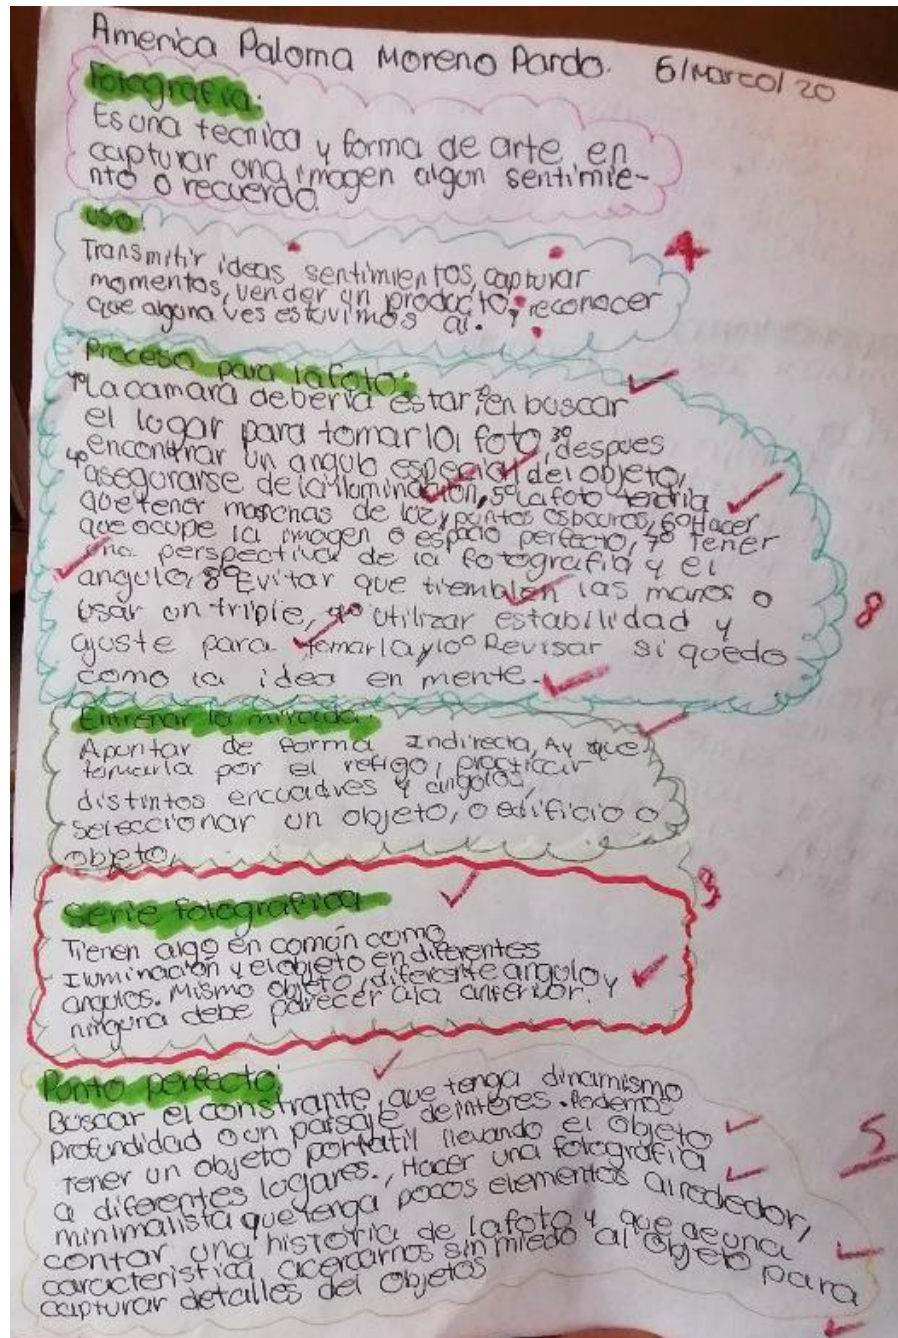 America Paloma Moreno Pardo. 6/Marzo/20
Fotografia:
Es una tecnica y forma de arte en
capturar una imagen algun sentimie-
nto o recuerdo.
uso:
Transmitir ideas, sentimientos, capturar
momentos, vender un producto, y reconocer
que alguna ves estuvimos ai.
4
Proceso para la foto:
1º La camara deberia estar, 2º en buscar
el logar para tomar la foto, 3º despues
encontrar un angulo especial del objeto,
4º asegurarse de la iluminación, 5º La foto tendria
que tener manchas de luz y puntos oscuros, 6º Hacer
que ocupe la imagen o espacio perfecto, 7º Tener
una perspectiva de la fotografia y el
angulo, 8º Evitar que tiemblen las manos o
usar un tripie, 9º utilizar estabilidad y
ajuste para tomarla y 10º Revisar si quedo
como la idea en mente.
8
Entrenar la mirada:
Apuntar de forma Indirecta, Ay que
tomarla por el refligo, practicar
distintos encuadres y angulos,
seleccionar un objeto, o edificio o
objeto.
Serie fotografica
Tienen algo en común como
Iluminación y el objeto en diferentes
angulos. Mismo objeto, diferente angulo y
ninguna debe parecer ala anterior.
3
Punto perfecto:
Buscar el constrante, que tenga dinamismo
Profundidad o un paisaje de interes. Podemos
Tener un objeto portatil llevando el objeto
a diferentes logares., Hacer una fotografia
minimalista que tenga pocos elementos alrededor,
contar una historia de la foto y que de una
caracteristica acercarnos sin miedo al objeto para
capturar detalles del objetos
5